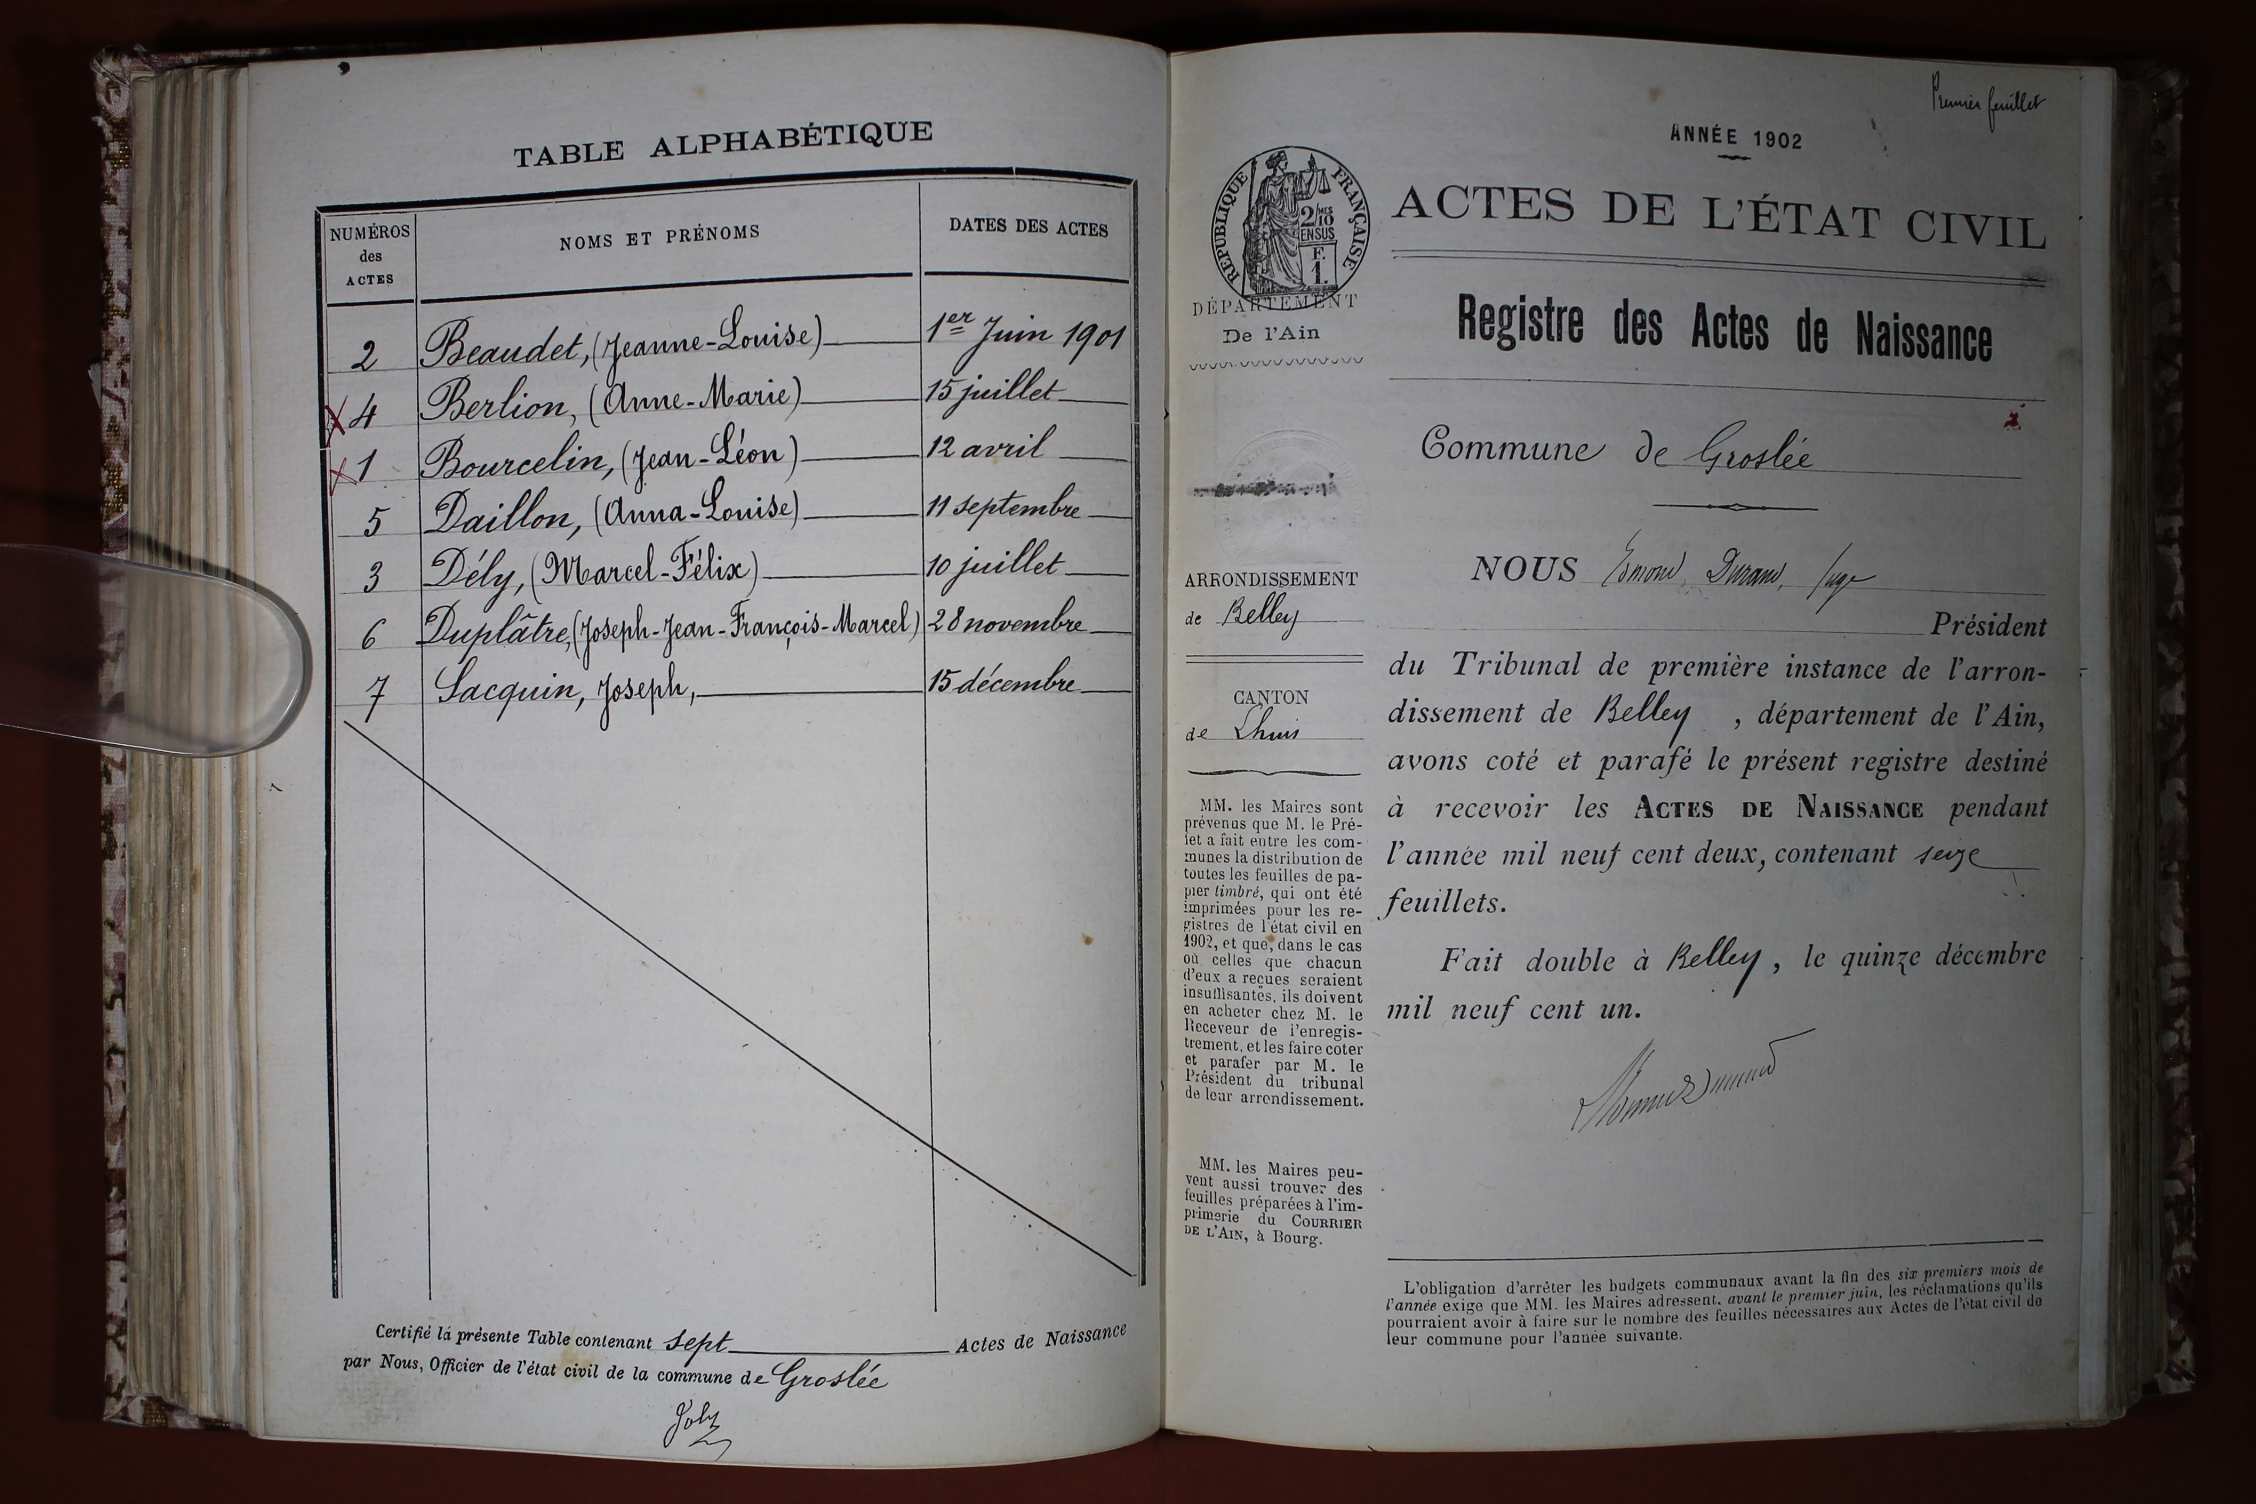 TABLE ALPHABÉTIQUE
NUMÉROS des ACTES
NOMS ET PRÉNOMS
DATES DES ACTES
2 Beaudet, (Jeanne-Louise) 1er Juin 1901
4 Berlion, (Anne-Marie) 15 juillet
1 Bourcelin, (Jean-Léon) 12 avril
5 Daillon, (Anna-Louise) 11 septembre
3 Dély, (Marcel-Félix) 10 juillet
6 Duplâtre, (Joseph-Jean-François-Marcel) 28 novembre
7 Sacquin, Joseph, 15 décembre
Certifié la présente Table contenant sept Actes de Naissance
par Nous, Officier de l'état civil de la commune de Groslée
Joly
Premier feuillet
ANNÉE 1902
RÉPUBLIQUE FRANÇAISE
2/10 MES
EN SUS
F.
1.
DÉPARTEMENT
De l'Ain
ARRONDISSEMENT
de Belley
CANTON
de Lhuis
MM. les Maires sont
prévenus que M. le Pré-
fet a fait entre les com-
munes la distribution de
toutes les feuilles de pa-
pier timbré, qui ont été
imprimées pour les re-
gistres de l'état civil en
1902, et que, dans le cas
où celles que chacun
d'eux a reçues seraient
insuffisantes, ils doivent
en acheter chez M. le
Receveur de l'enregis-
trement, et les faire coter
et parafer par M. le
Président du tribunal
de leur arrondissement.
MM. les Maires peu-
vent aussi trouver des
feuilles préparées à l'im-
primerie du COURRIER
DE L'AIN, à Bourg.
ACTES DE L'ÉTAT CIVIL
Registre des Actes de Naissance
Commune de Groslée
NOUS Durand, Juge
Président
du Tribunal de première instance de l'arron-
dissement de Belley, département de l'Ain,
avons coté et parafé le présent registre destiné
à recevoir les ACTES DE NAISSANCE pendant
l'année mil neuf cent deux, contenant seize
feuillets.
Fait double à Belley, le quinze décembre
mil neuf cent un.
L'obligation d'arrêter les budgets communaux avant la fin des six premiers mois de
l'année exige que MM. les Maires adressent, avant le premier juin, les réclamations qu'ils
pourraient avoir à faire sur le nombre des feuilles nécessaires aux Actes de l'état civil de
leur commune pour l'année suivante.